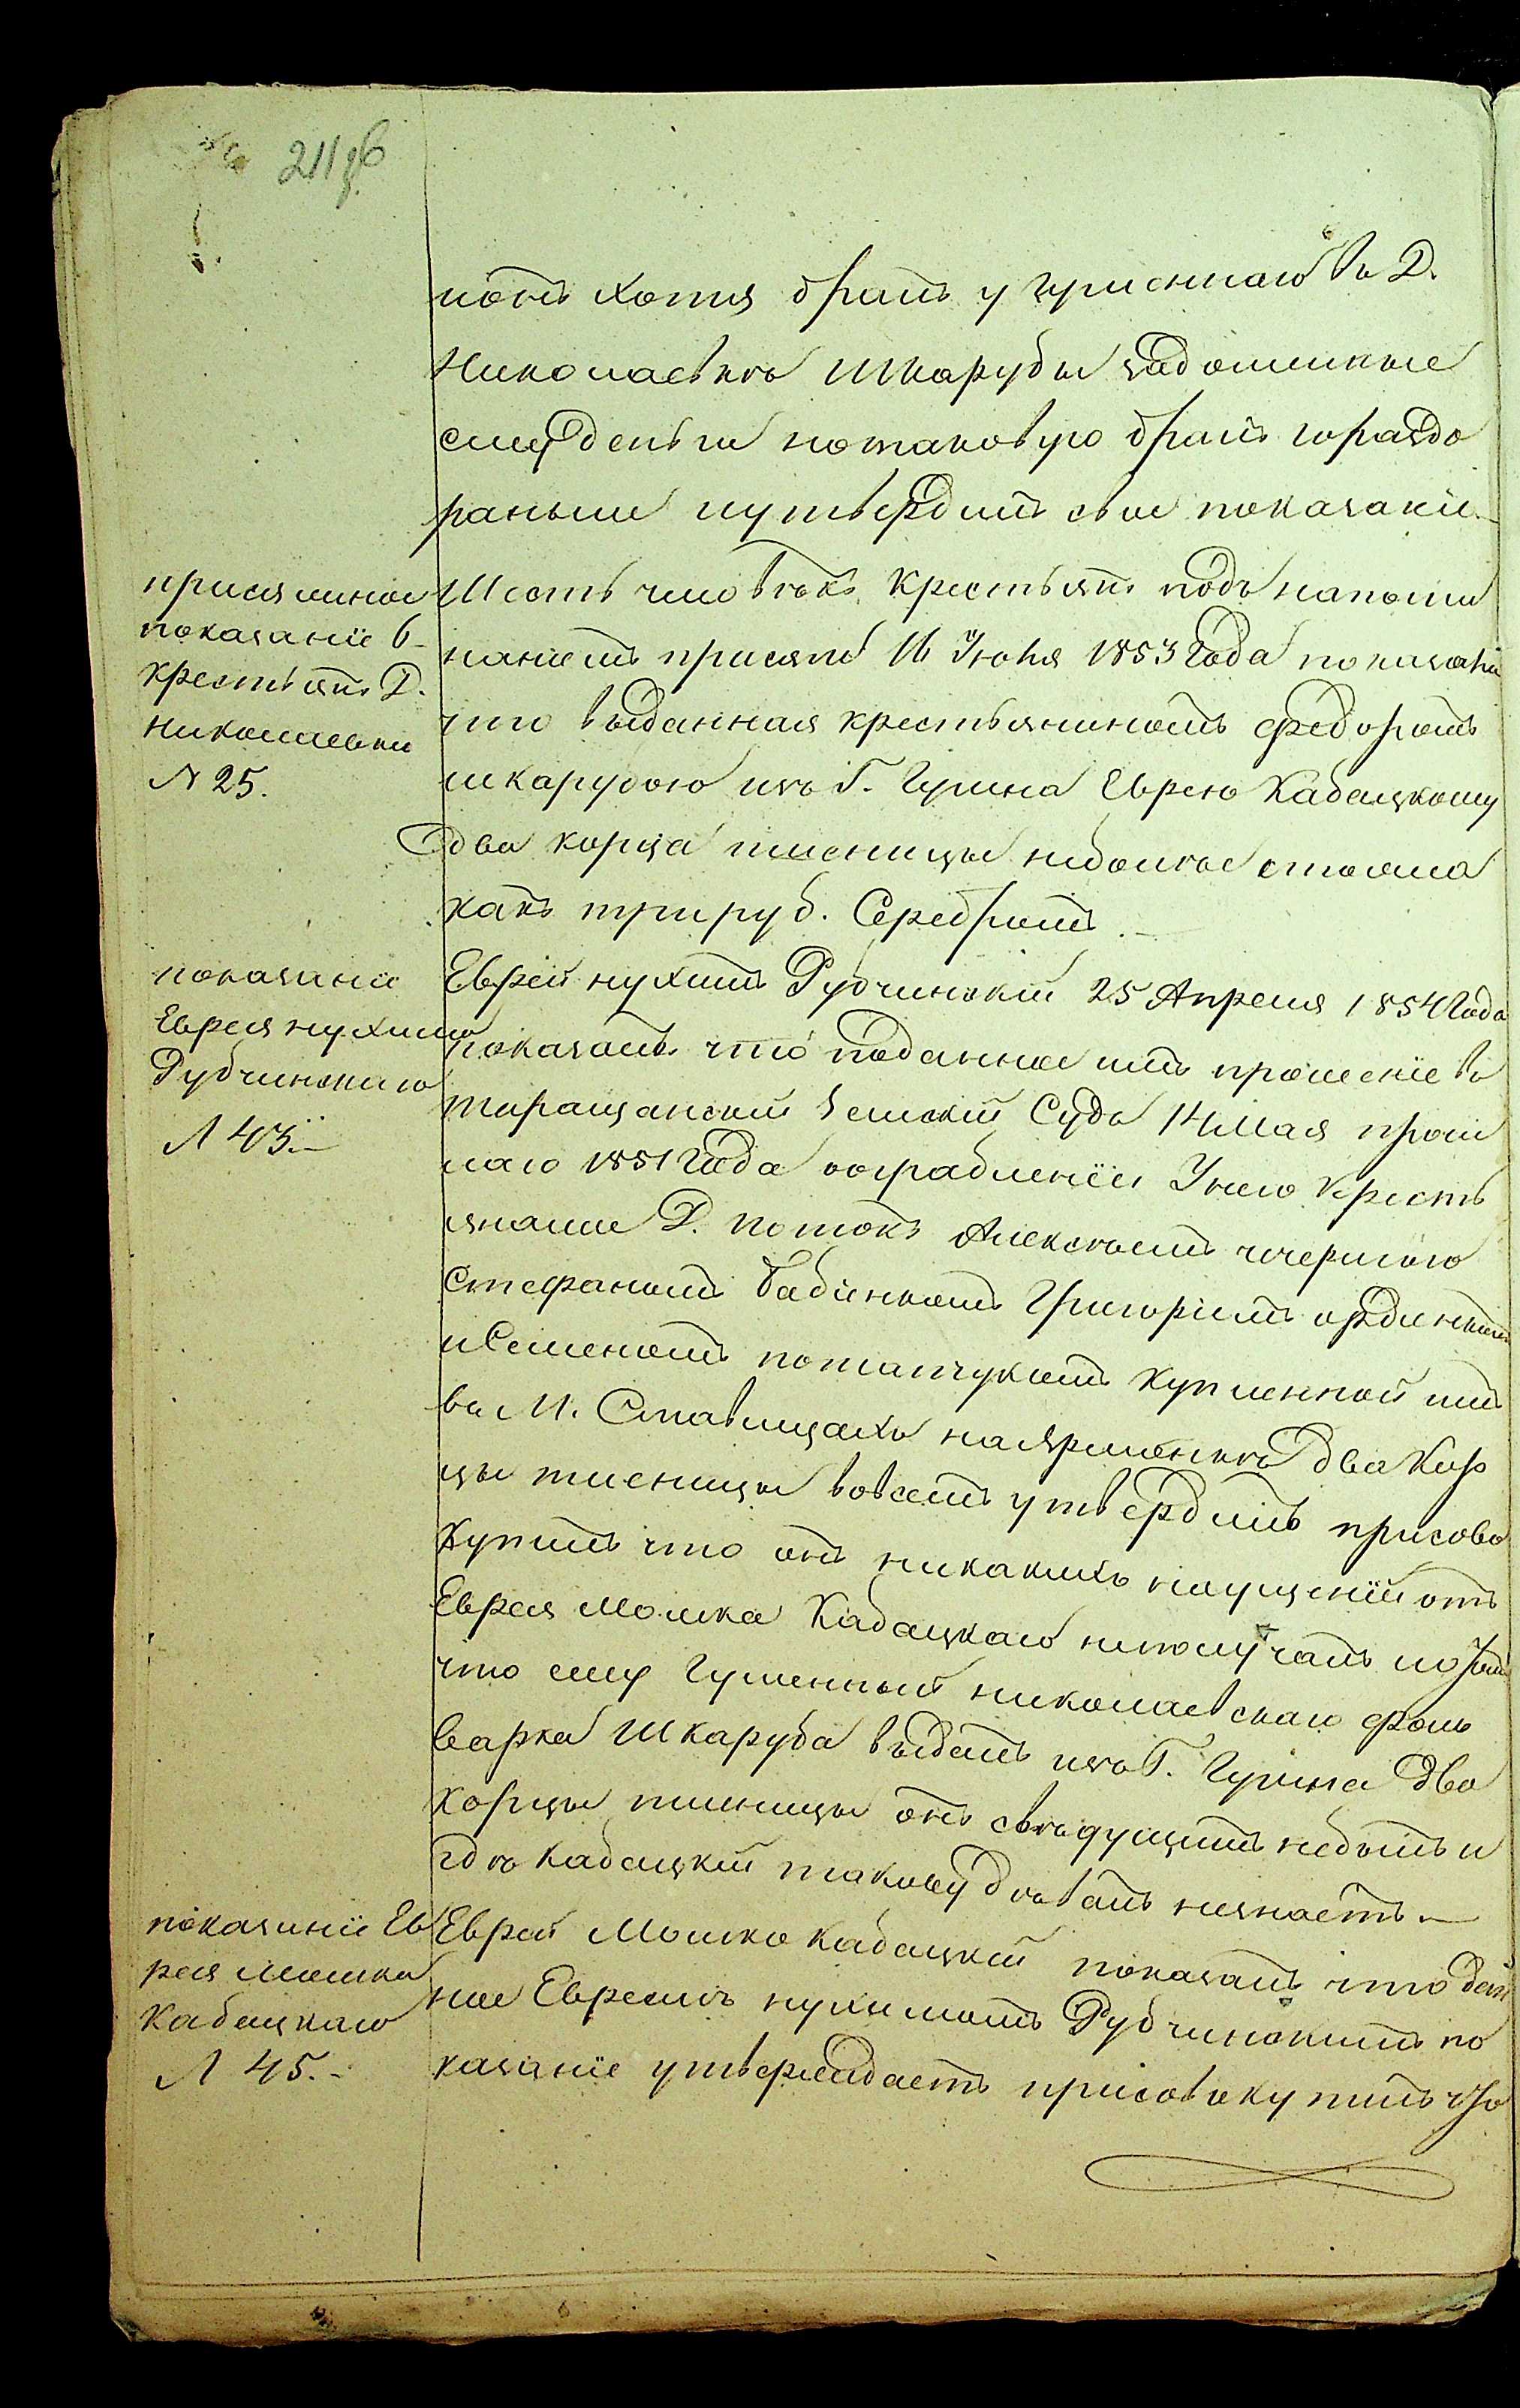 211 об
нонъ хотя бралъ у гуменнаго въ Д.
Николаевкѣ Шкарубы задолжные
ему деньги нотаковую бралъ гораздо
раньше иутвердилъ свое показаніе.—
присяжное
показаніе 6
крестьянъ Д.
Николаевки
Л 25.
Шесть человѣкъ крестьянъ подъ напоми
наніемъ присяги 16 Іюня 1853 Года показали
что выданная крестьяниномъ Федоромъ
шкарубою изъ Г. Гумна Еврею Кабацкому
два корца пшеницы небольѣ стоила
какъ три руб. Серебромъ.—
показаніе
Еврея нухима
Рубчинскаго
Л 43.—
Еврей нухимъ Рубчинскій 25 Апреля 1854 Года
показалъ что поданное имъ прошеніе въ
таращанскій Земскій Судъ 14 Мая прош
лаго 1851 Года оограбленіи Унего Кресть
янами Д. Потокъ Алексѣемъ
Стефаномъ Бабіенкомъ Григоріемъ
иСеменомъ потапчукомъ Купленной имъ
въ М. Ставищахъ наЯрмонкѣ два Кор
цы пшеницы вовсемъ утвердилъ присово
Купилъ что онъ никакихъ наущеній отъ
Еврея Мошка Кабацкаго неполучалъ
что ему Гуменный николаевскаго фоль
варка Шкаруба выдалъ изъ Г. Гумна два
Корцы пшеницы онъ свѣдущимъ небылъ и
гдѣ Кабацкій таковую дѣвалъ незнаетъ.—
показаніе Ев
рея Мошка
Кабацкаго
Л 45.—
Еврей Мошко Кабацкій показалъ что дан
ное Евреемъ нухимомъ Рубчинскимъ по
казаніе утверждаетъ присовокупилъ что